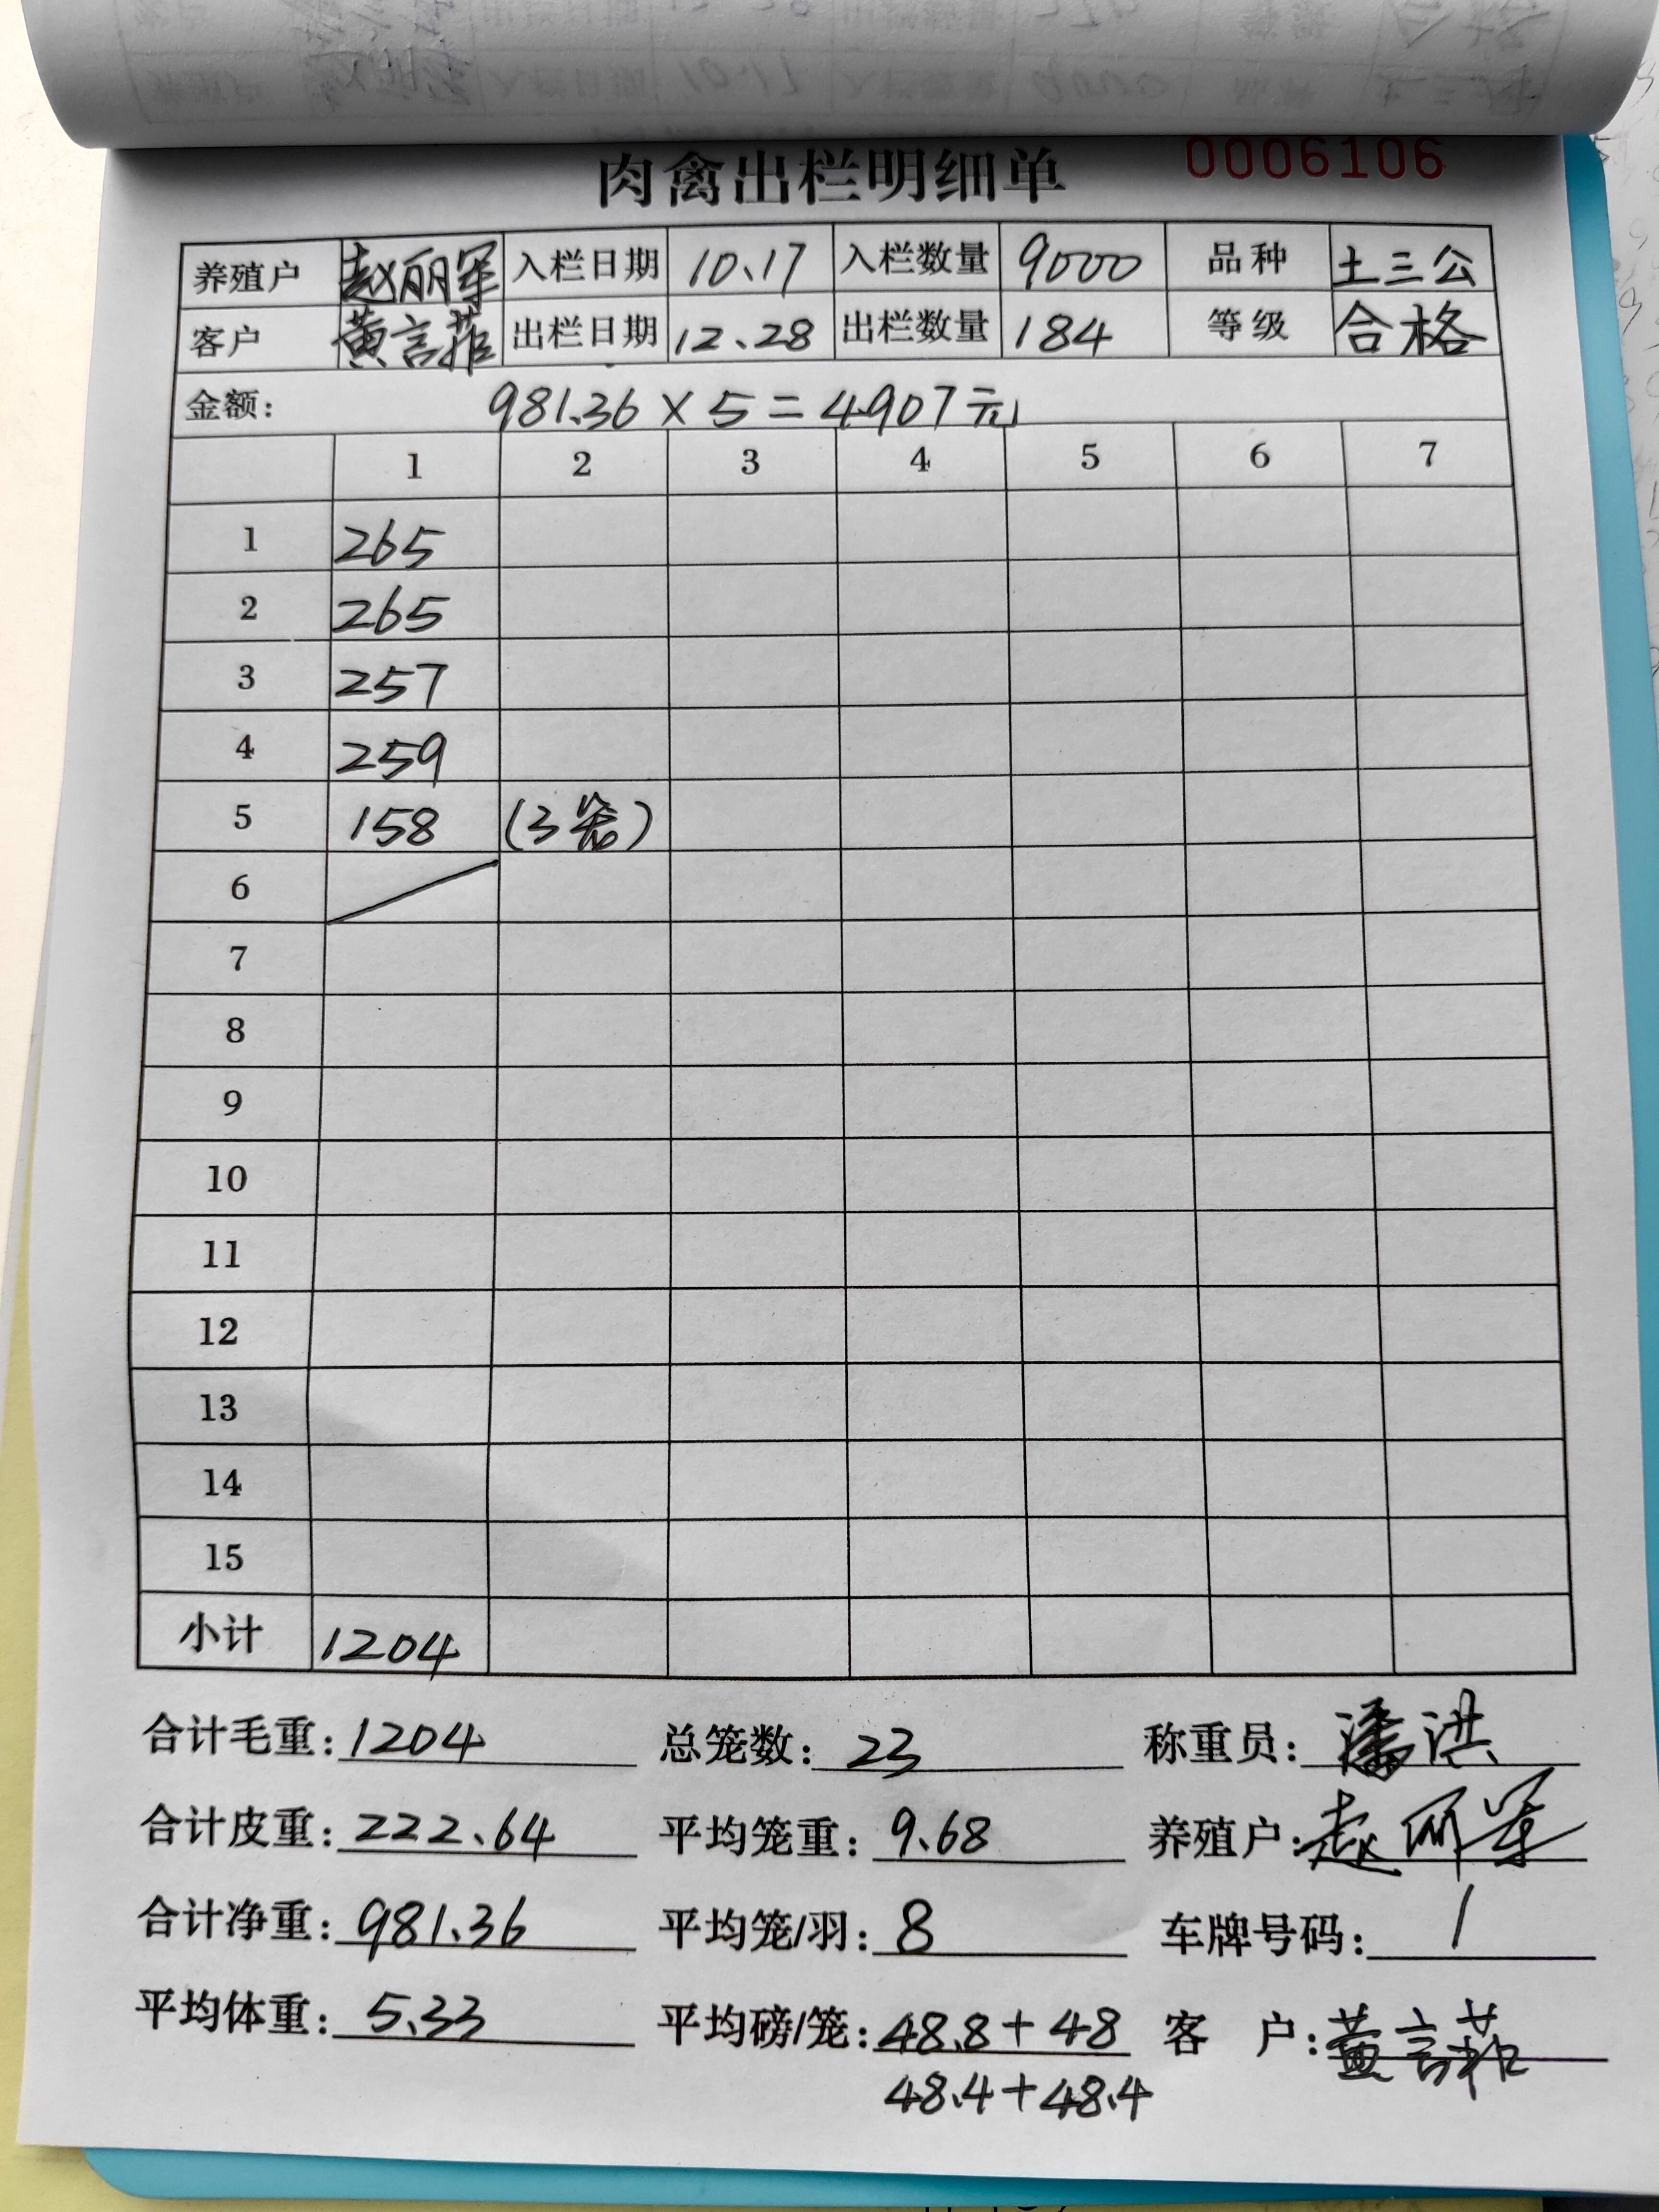 肉禽出栏明细单 0006106
养殖户 赵丽军 入栏日期 10.17 入栏数量 9000 品种 土三公
客户 黄言菇 出栏日期 12.28 出栏数量 184 等级 合格
金额: 981.36 × 5 = 4907元
1 2 3 4 5 6 7
1 265
2 265
3 257
4 259
5 158 (3笼)
6
7
8
9
10
11
12
13
14
15
小计 1204
合计毛重: 1204 总笼数: 23 称重员: 潘洪
合计皮重: 222.64 平均笼重: 9.68 养殖户: 赵丽军
合计净重: 981.36 平均笼/羽: 8 车牌号码: /
平均体重: 5.33 平均磅/笼: 48.8+48 客 户: 黄言菇
48.4+48.4